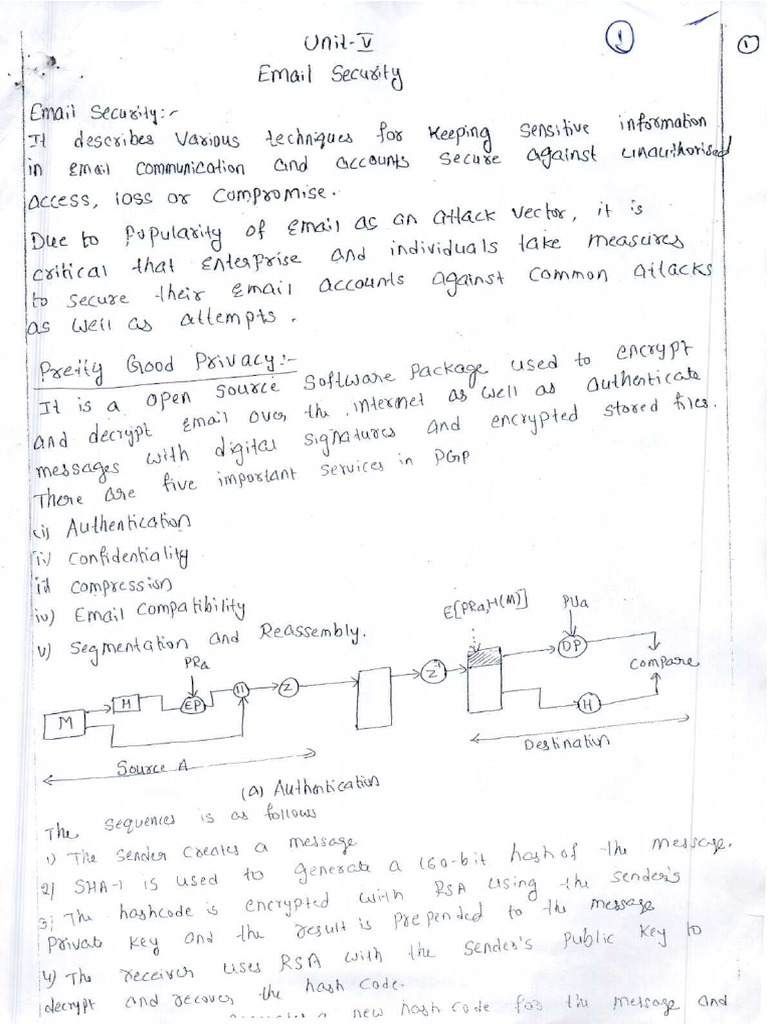 Unit-V
1
1
Email Security
Email Security:-
It describes Various techniques for keeping sensitive information
in Email communication and accounts secure against unauthorised
access, loss or compromise.
Due to popularity of Email as an attack vector, it is
critical that enterprise and individuals take measures
to secure their Email accounts against common attacks
as well as attempts.
Pretty Good Privacy:-
It is a open source software package used to encrypt
and decrypt email over the internet as well as authenticate
messages with digital signatures and encrypted stored files.
There are five important services in PGP
(i) Authentication
ii) Confidentiality
iii) Compression
iv) Email Compatibility
v) Segmentation and Reassembly.
E[PRa,H(M)]
PUa
PRa
M
H
EP
||
Z
Z⁻¹
DP
Compare
H
Source A
Destination
(a) Authentication
The sequences is as follows
1) The sender creates a message
2) SHA-1 is used to generate a 160-bit hash of the message.
3) The hashcode is encrypted with RSA using the sender's
Private key and the result is prepended to the message
4) The receiver uses RSA with the sender's public key to
decrypt and recover the hash code.
a new hash code for the message and